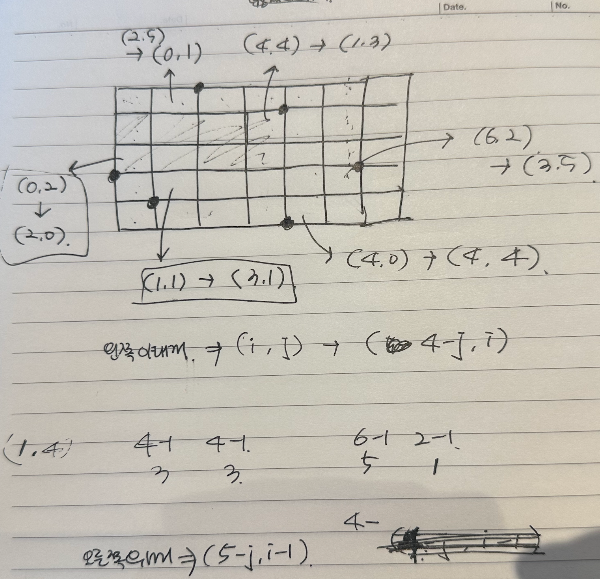 Date. No.
(2.5)
→ (0,1) (4,4) → (1,3)
(6,2)
→ (3,5)
(0,2)
↓
(2,0).
(4,0) → (4, 4).
(1,1) → (3,1)
?
왼쪽아래 ⇒ (i, j) → ( 4-j, i)
(1,4) 4-1 4-1. 6-1 2-1.
3 3. 5 1
4-
오른쪽위 ⇒ (5-j, i-1).